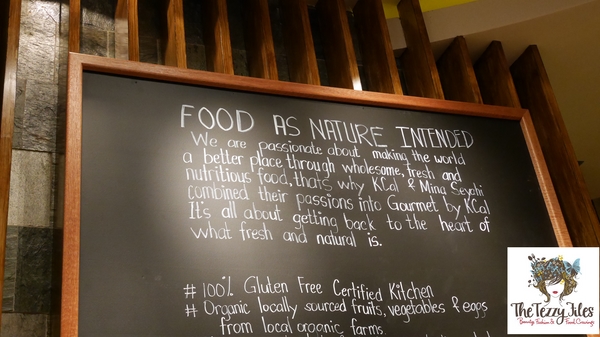 FOOD AS NATURE INTENDED
We are passionate about making the world
a better place through wholesome, fresh and
nutritious food, thats why KCal & Mina Seyahi
combined their passions into Gourmet by KCal
It's all about getting back to the heart of
what fresh and natural is.
# 100% Gluten Free Certified Kitchen
# Organic locally sourced fruits, vegetables & eggs
from local organic farms
The Tezzy Files
Beauty, Fashion & Food Cravings